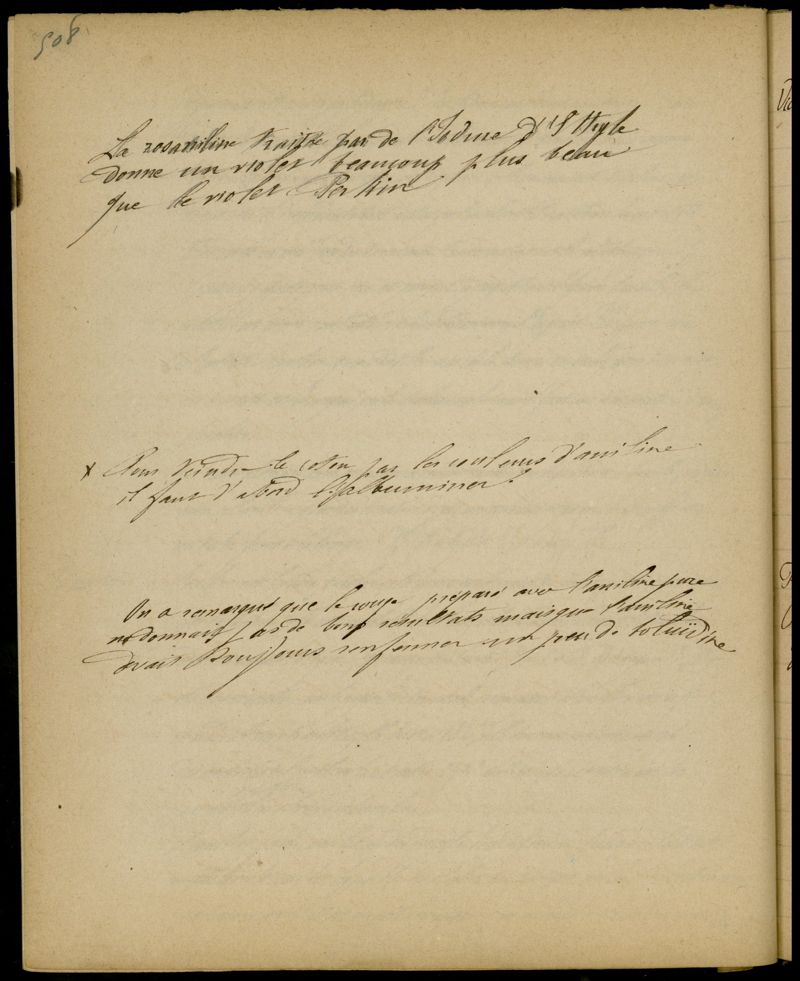 508
La rosaniline traitée par de l'Iodure d'Ethyle
donne un violet beaucoup plus beau
que le violet Perkin
x Pour teindre le coton par les couleurs d'aniline
il faut d'abord l'albuminer.
On a remarqué que le rouge préparé avec l'aniline pure
ne donnait pas de bons résultats mais que l'aniline
devait toujours renfermer un peu de toluidine